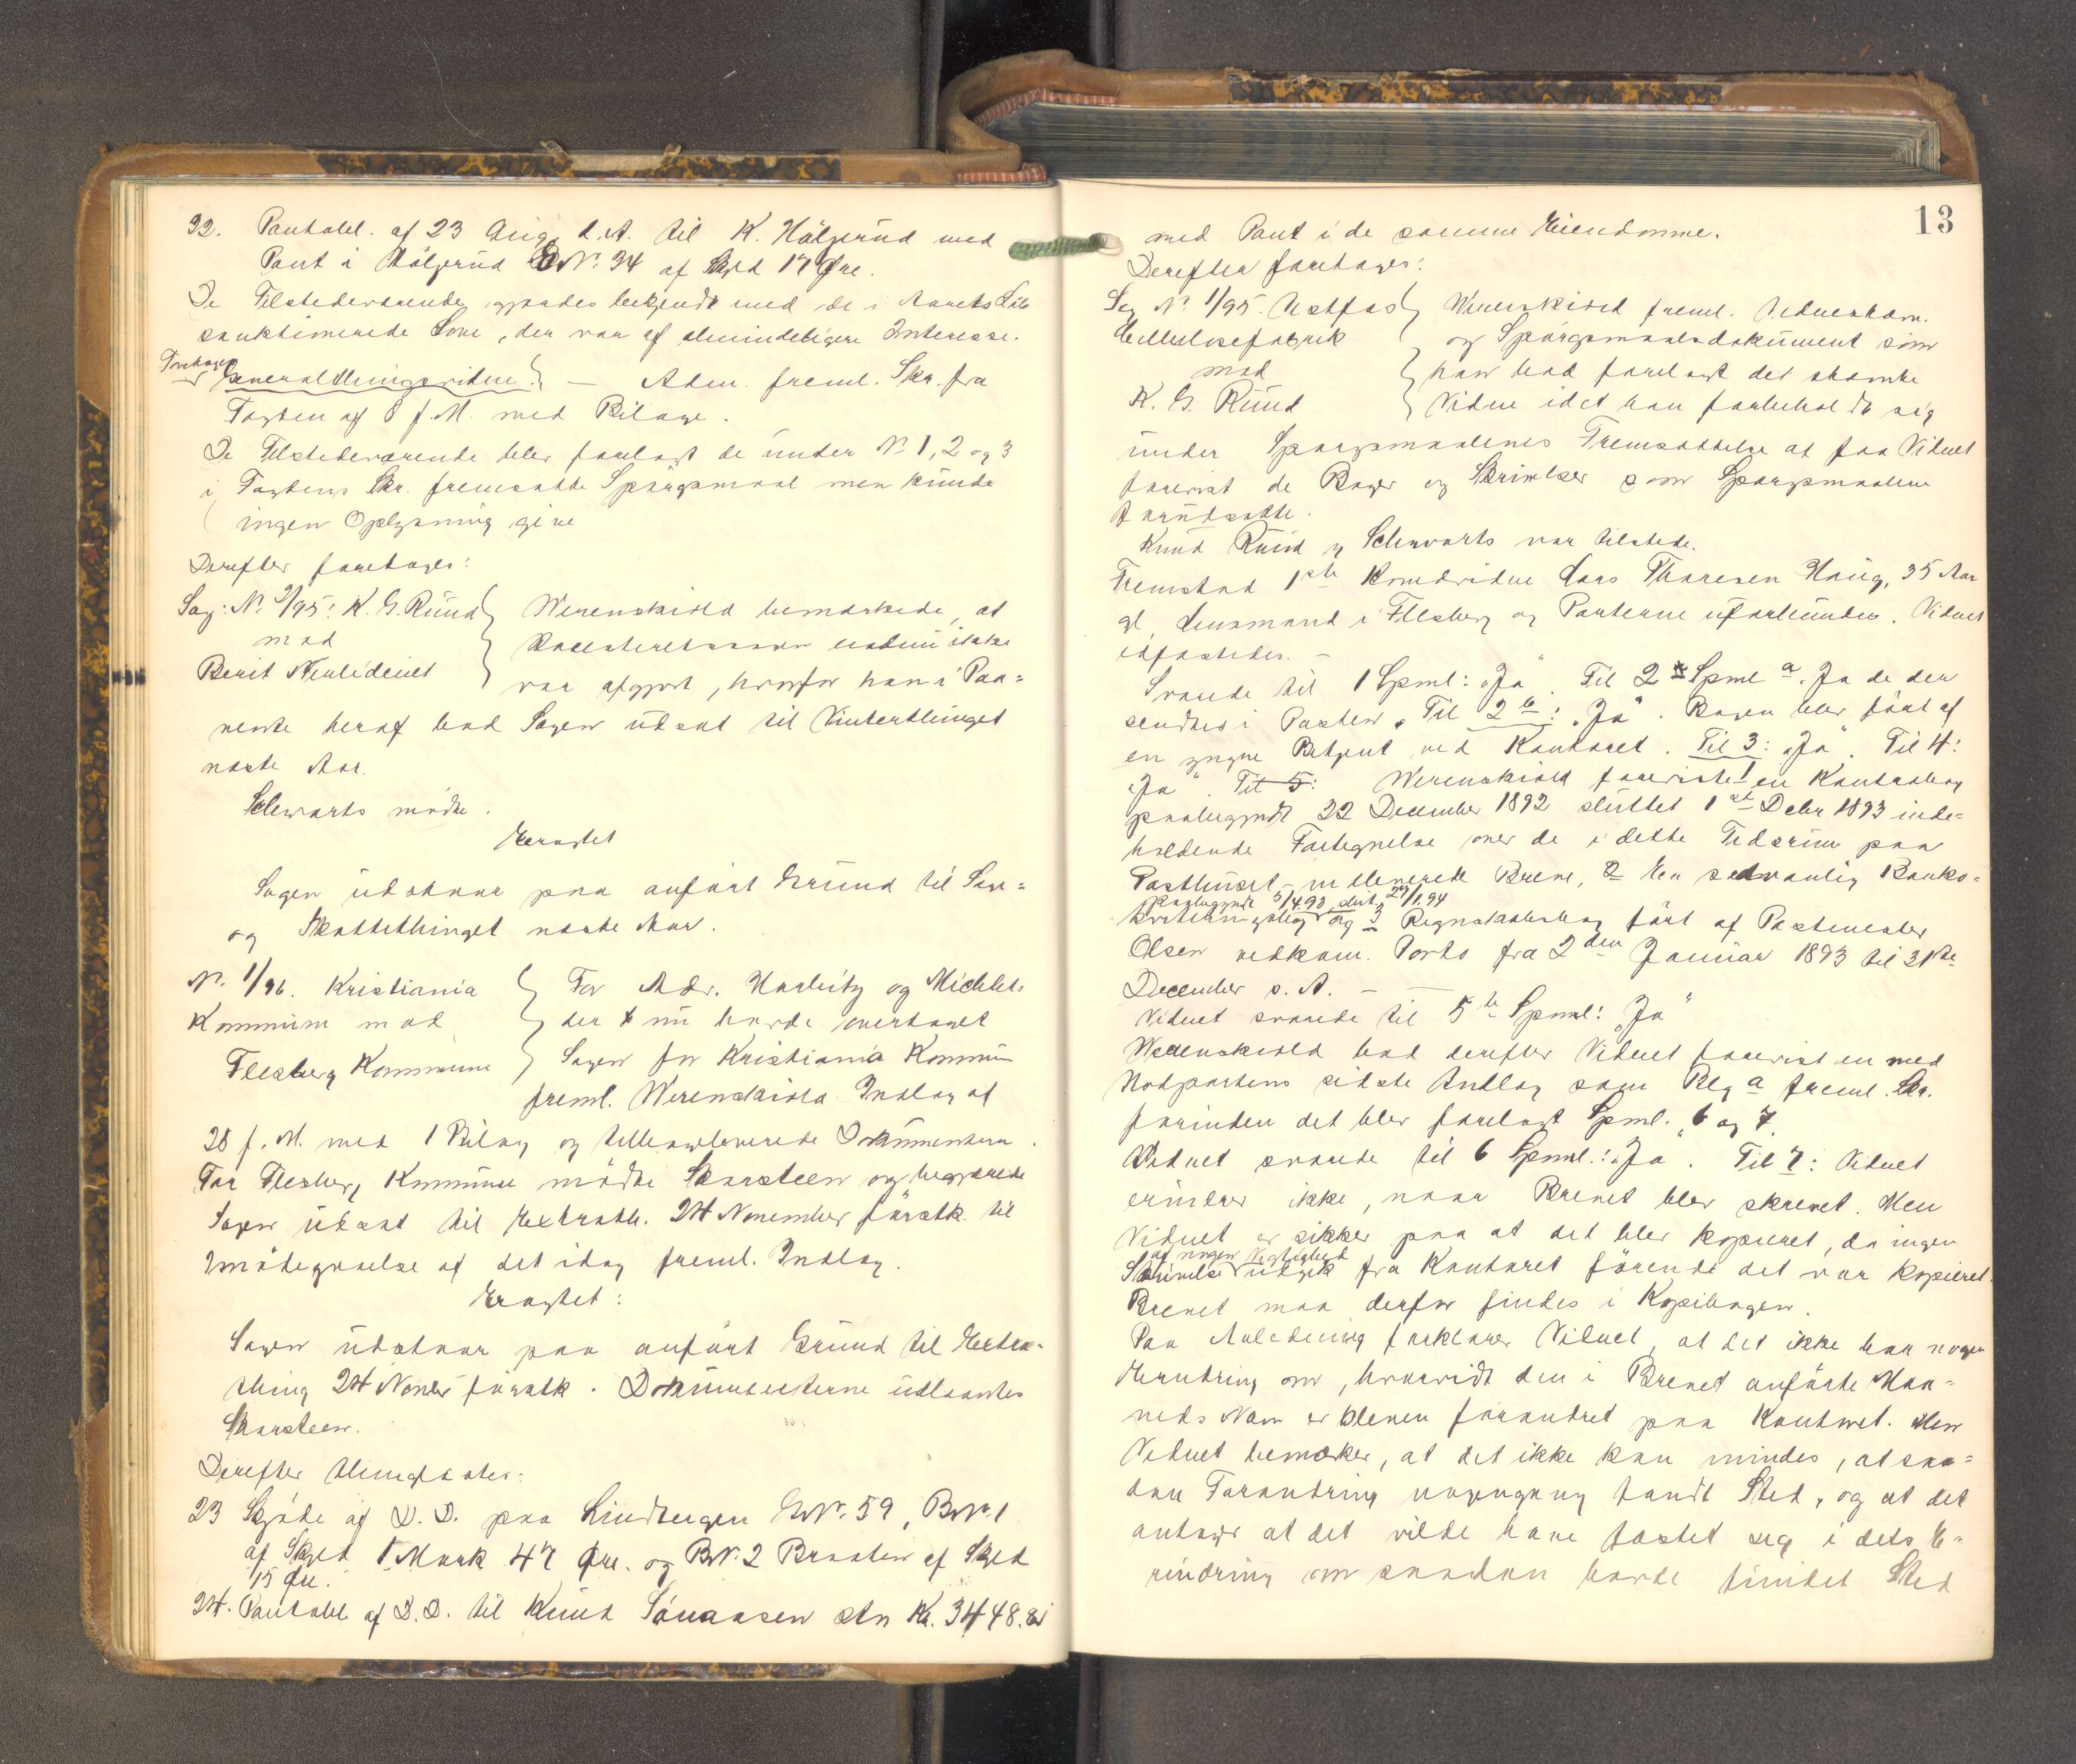 22. Pantobl. af 23 Aug. d. A. til K. Hölgerud med
Pant i Hölgerud GNr. 34 af Skyld 17 Øre.
De Tilstedeværende gjordes bekjendt med de i Aarets Löb
sanktionerede Love, der var af almindeligere Interesse.
Foretages
Generalthingsviden. } — Adm. freml. Skr. fra
Fogden af 8 f. M. med Bilage.
De Tilstedeværende blev forelagt de under No 1, 2 og 3
i Fogdens Skr. fremsatte Spörgsmaal men kunde
ingen Oplysning give
Derefter foretages:
Sag: No. 2/95: K. G. Ruud } Werenskiold bemærkede, at
mod } endnu ikke
Berit } var afgjort, hvorfor han i Paa=
vente heraf bad Sagen udsat til Vinterthinget
næste Aar.
Schwarts mödte.
Eragtet
Sagen udstaar paa anfört Grund til Sage=
og Skattethinget næste Aar.
No. 1/96. Kristiania } For Adv. Harbitz og Michelet
Kommune mod } der nu havde overtaget
Flesberg Kommune } Sagen for Kristiania Kommune
freml. Werenskiold Indlæg af
28 f. M. med 1 Bilag og Dokumenter.
For Flesberg Kommune mödte Skarsteen og begjærede
Sagen udsat til Extrath. 24 November förstk. til
Imödegaaelse af det idag freml. Indlæg.
Eragtet:
Sagen udstaar paa anfört Grund til Extra-
thing 24 Novbr förstk. Dokumenterne udlaantes
Skarsteen.
Derefter thinglæstes:
23 Skjöde af D. D. paa Lindhaugen GNr. 59, BNr. 1
af Skyld 1 Mark 47 Øre. og BNr. 2 Braaten af Skyld
15 Øre.
24. Pantobl af D. D. til Knud Sönaasen stor Kr. 3448.
13
med Pant i de samme Eiendomme.
Derefter foretages:
Sag No 1/95. Vestfos } Werenskiold freml. Vidnestevn.
Cellulosefabrik } og Spörgsmaalsdokument som
mod } han bad forelagt det stævnte
K. G. Ruud } Vidne idet han forbeholdt sig
under Spörgsmaalenes Fremsættelse at faa Vidnet
forevist de Böger og Skrivelser som Spörgsmaalene
forudsatte.
Knud Ruud og Schwarts var tilstede.
Fremstod 1ste Lars Thoresen Haug, 35 Aar
gl, Lensmand i Flesberg og Parterne uforbunden. Vidnet
edfæstedes. —
Svarede til 1 Spml: „Ja". Til 2 Spml a. Ja de der
sendtes i Posten. Til 2 b: „Ja". Bogen blev fört af
en yngre Betjent ved Kontoret. Til 3: „Ja". Til 4:
„Ja". Til 5: Werenskiold foreviste 1 en Kontrabog
paabegyndt 22 December 1892 sluttet 1st Debr 1893 inde=
holdende Fortegnelse over de i dette Tidsrum paa
Posthuset indleverede Breve, 2 En sedvanlig Banko=
paabegyndt 5/4.93 slut. 27/1.94
og 3 Regnskabsbog fört af Postmester
Olsen vedkom. Porto fra 2den Januar 1893 til 31te
December s. A. —
Vidnet svarede til 5te Spml: „Ja"
Werenskiold bad derefter Vidnet forevist en med
Modpartens sidste Indlæg som Blg a freml. Skr.
forinden det blev forelagt Spml. 6 og 7.
Vidnet svarede til 6 Spml.: „Ja". Til 7: Vidnet
erindrer ikke, naar Brevet blev skrevet. Men
Vidnet er sikker paa at det blev kopieret, da ingen
af nogen Vigtighed
Skrivelse udgik fra Kontoret förend det var kopieret.
Brevet maa derfor findes i Kopibogen.
Paa Anledning forklarer Vidnet, at det ikke har nogen
Erindring om, hvorvidt den i Brevet anförte Maa=
neds Navn er bleven forandret paa Kontoret. Men
Vidnet bemærker, at det ikke kan mindes, at saa=
dan Forandring nogengang fandt Sted, og at det
antager at det vilde have fæstet sig i dets E=
rindring om saadan havde fundet Sted